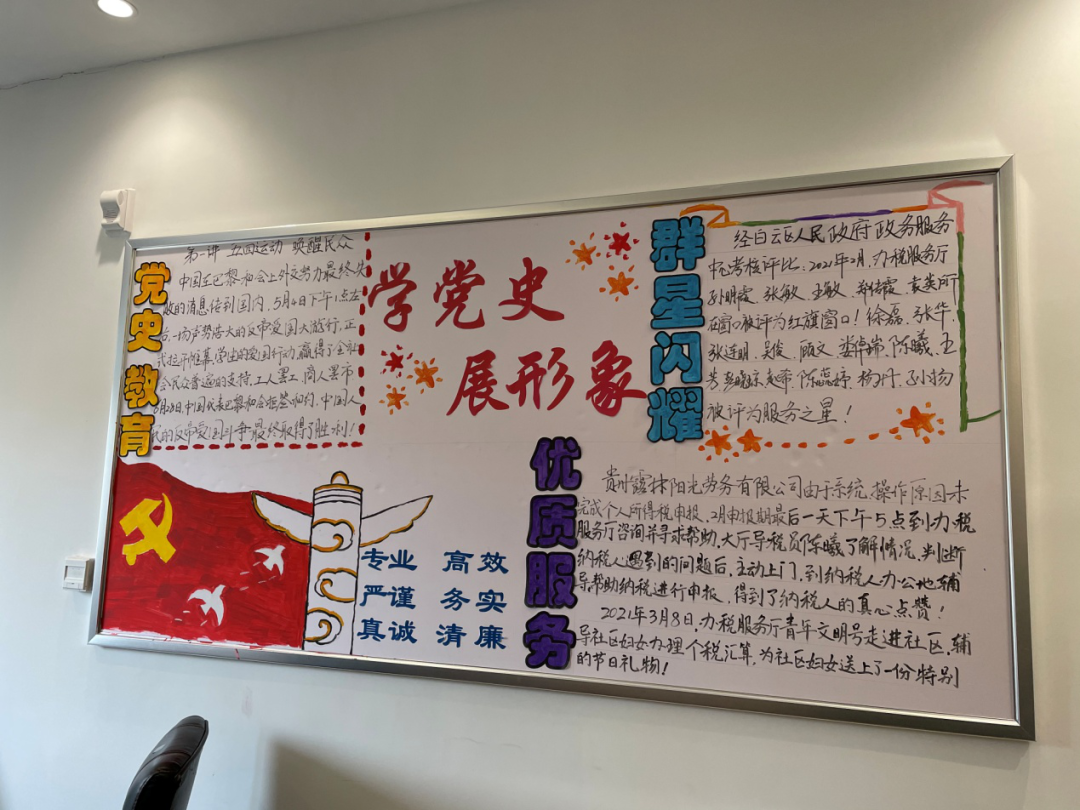 党史教育
第一讲 五四运动 唤醒民众
中国在巴黎和会上外交努力最终失
败的消息传到国内，5月4日下午1点左
右，一场声势浩大的反帝爱国大游行，正
式拉开帷幕，学生的爱国行动，赢得了全社
会民众普遍的支持，工人罢工，商人罢市，
6月28日，中国代表巴黎和会拒签和约，中国人
民的反帝爱国斗争最终取得了胜利！
学党史
展形象
群星闪耀
经白云区人民政府政务服务
中心考核评比，2021年2月，办税服务厅
孙明霞、张敏、王敏、郑绪霞、袁英所
在窗口被评为红旗窗口！徐磊、张华、
张连明、吴俊、顾文、娄倬端、陈曦、王
陈蕊婷、杨丹、孙扬
被评为服务之星！
专业 高效
严谨 务实
真诚 清廉
优质服务
贵州 阳光劳务有限公司由于系统操作原因未
完成个人所得税申报，2月申报期最后一天下午5点到办税
服务厅咨询并寻求帮助，大厅导税员陈曦了解情况，判断
纳税人遇到的问题后，主动上门，到纳税人办公地辅
导帮助纳税进行申报，得到了纳税人的真心点赞！
2021年3月8日，办税服务厅青年文明号走进社区，辅
导社区妇女办理个税汇算，为社区妇女送上了一份特别
的节日礼物！